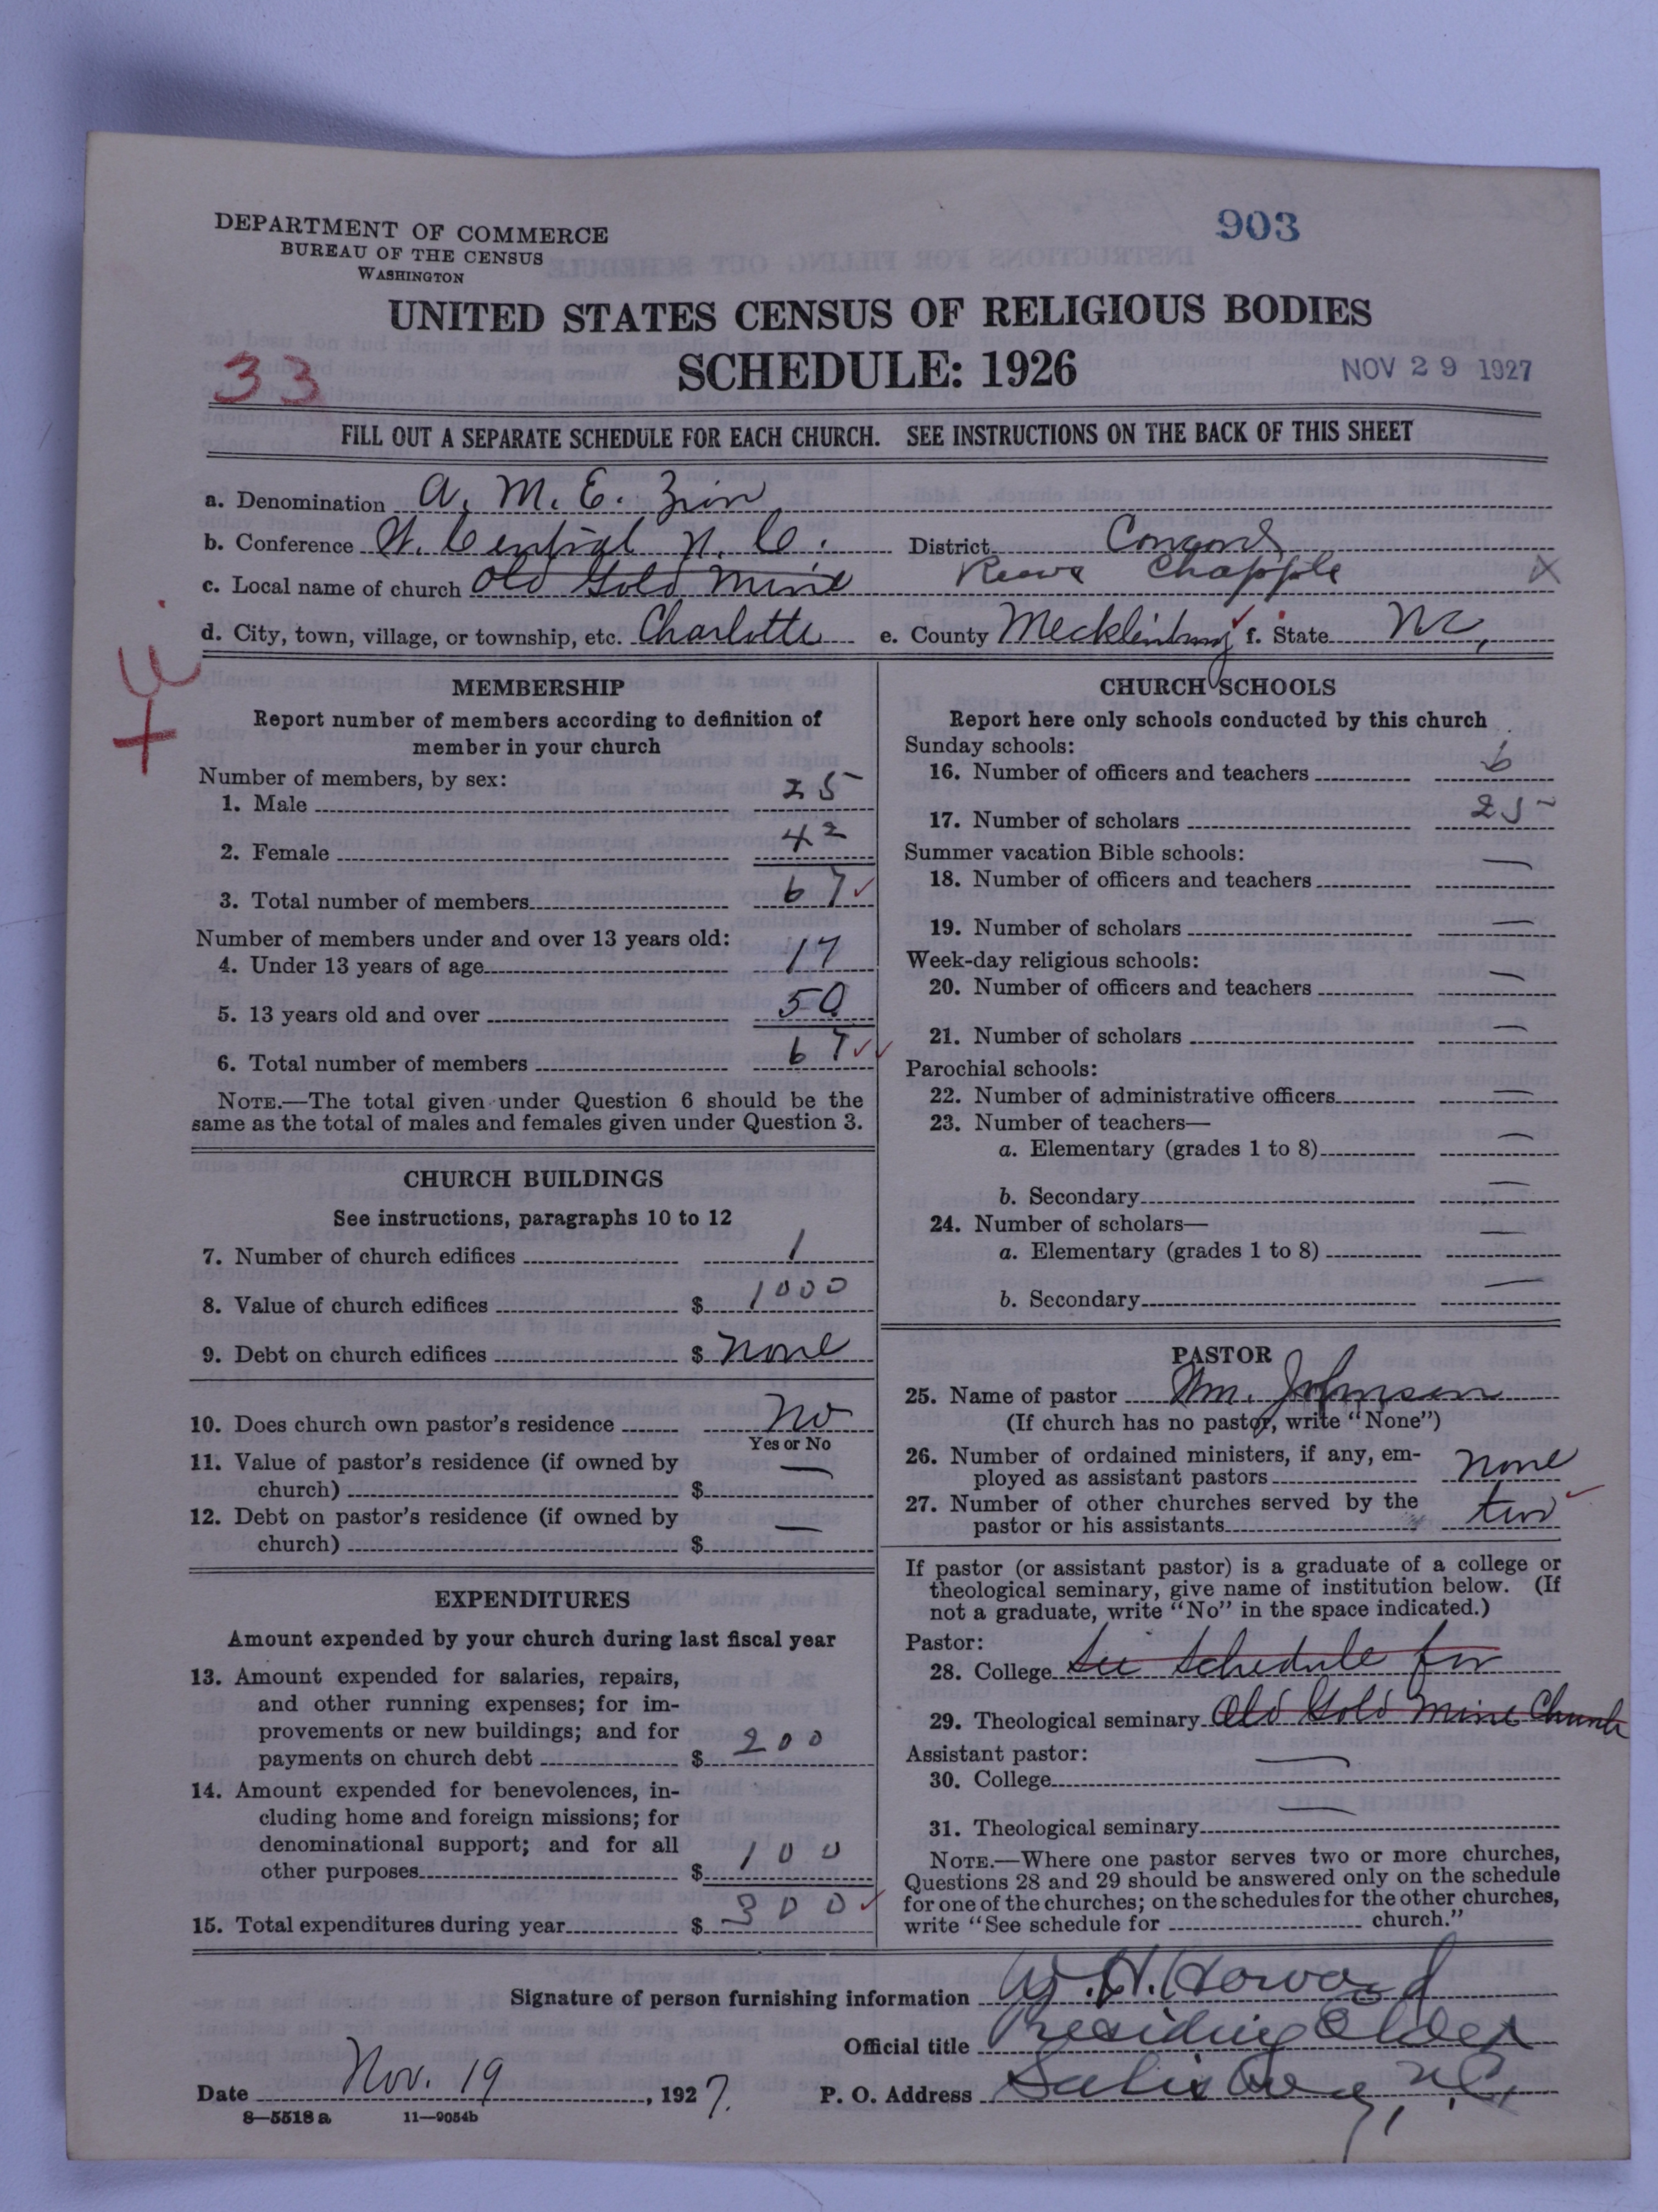 DEPARTMENT OF COMMERCE
BUREAU OF THE CENSUS
WASHINGTON
903
UNITED STATES CENSUS OF RELIGIOUS BODIES
33
SCHEDULE: 1926
NOV 29 1927
FILL OUT A SEPARATE SCHEDULE FOR EACH CHURCH. SEE INSTRUCTIONS ON THE BACK OF THIS SHEET
a. Denomination A. M. E. Zion
b. Conference W. Central N. C. District Concord
c. Local name of church Old Gold Mine Chapple X
d. City, town, village, or township, etc. Charlotte e. County Mecklinburg f. State NC,
MEMBERSHIP
Report number of members according to definition of
member in your church
Number of members, by sex:
1. Male 25
2. Female 42
3. Total number of members 67
Number of members under and over 13 years old:
4. Under 13 years of age 17
5. 13 years old and over 50
6. Total number of members 67
NOTE.—The total given under Question 6 should be the
same as the total of males and females given under Question 3.
CHURCH BUILDINGS
See instructions, paragraphs 10 to 12
7. Number of church edifices 1
8. Value of church edifices $ 1000
9. Debt on church edifices $ None
10. Does church own pastor's residence No
Yes or No
11. Value of pastor's residence (if owned by
church) $ —
12. Debt on pastor's residence (if owned by
church) $ —
EXPENDITURES
Amount expended by your church during last fiscal year
13. Amount expended for salaries, repairs,
and other running expenses; for im-
provements or new buildings; and for
payments on church debt $ 200
14. Amount expended for benevolences, in-
cluding home and foreign missions; for
denominational support; and for all
other purposes $ 100
15. Total expenditures during year $ 300
CHURCH SCHOOLS
Report here only schools conducted by this church
Sunday schools:
16. Number of officers and teachers 6
17. Number of scholars 25
Summer vacation Bible schools:
18. Number of officers and teachers —
19. Number of scholars —
Week-day religious schools:
20. Number of officers and teachers —
21. Number of scholars —
Parochial schools:
22. Number of administrative officers —
23. Number of teachers—
a. Elementary (grades 1 to 8) —
b. Secondary —
24. Number of scholars—
a. Elementary (grades 1 to 8) —
b. Secondary —
PASTOR
25. Name of pastor Wm. Johnson
(If church has no pastor, write "None")
26. Number of ordained ministers, if any, em-
ployed as assistant pastors None
27. Number of other churches served by the
pastor or his assistants two
If pastor (or assistant pastor) is a graduate of a college or
theological seminary, give name of institution below. (If
not a graduate, write "No" in the space indicated.)
Pastor:
28. College See Schedule for
29. Theological seminary Old Gold Mine Church
Assistant pastor:
30. College —
31. Theological seminary —
NOTE.—Where one pastor serves two or more churches,
Questions 28 and 29 should be answered only on the schedule
for one of the churches; on the schedules for the other churches,
write "See schedule for ______ church."
Signature of person furnishing information W. H. Howard
Official title Presiding Elder
Date Nov. 19, 1927. P. O. Address Salisbury, N.C,
8—5518 a 11—9054b